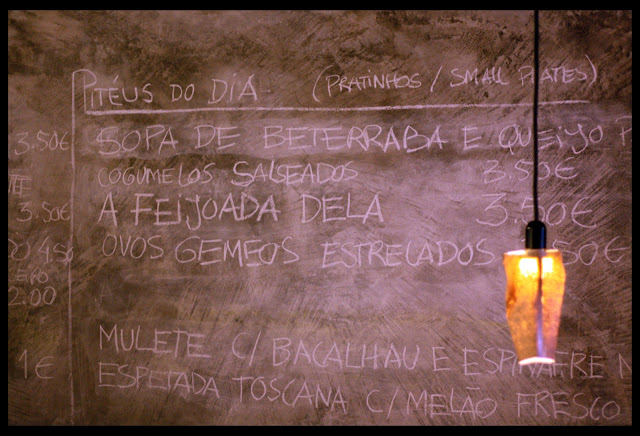 PITÉUS DO DIA (PRATINHOS / SMALL PLATES)
3.50€ SOPA DE BETERRABA E QUEIJO
COGUMELOS SALSEADOS 3.50€
3.50€ A FEIJOADA DELA 3.50€
OVOS GEMEOS ESTRELADOS 50€
2.00
MULETE C/ BACALHAU E ESPINAFRE
1€ ESPETADA TOSCANA C/ MELÃO FRESCO